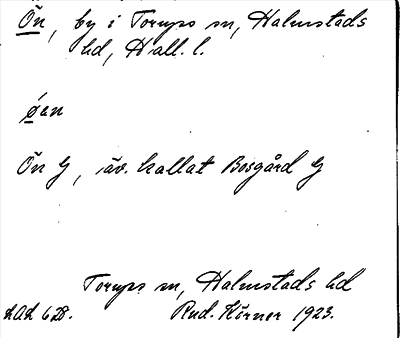 Ön, by i Torups sn, Halmstads
hd, Hall. l.
øen
Ön G, äv. kallat Bosgård G
Torups sn, Halmstads hd
LAL 628. Rud. Körner 1923.